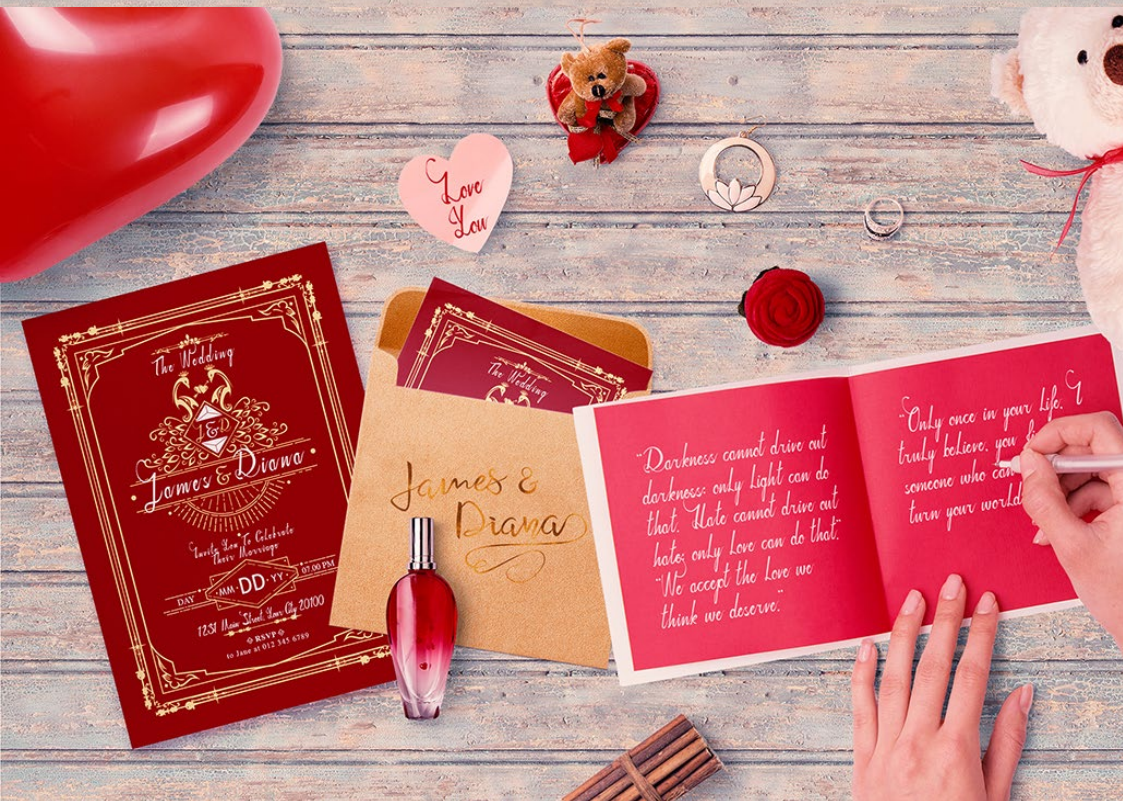 Love
You
The Wedding
J&D
James & Diana
Invite You To Celebrate
Their Marriage
DAY
·MM·DD·YY·
07.00 PM
1231 Main Street, Your City 20100
RSVP
to Jane at 012 345 6789
The Wedding
James &
Diana
"Darkness cannot drive out
darkness: only Light can do
that. Hate cannot drive out
hate; only Love can do that."
"We accept the Love we
think we deserve."
"Only once in your Life, I
truly believe, you
someone who can
turn your world